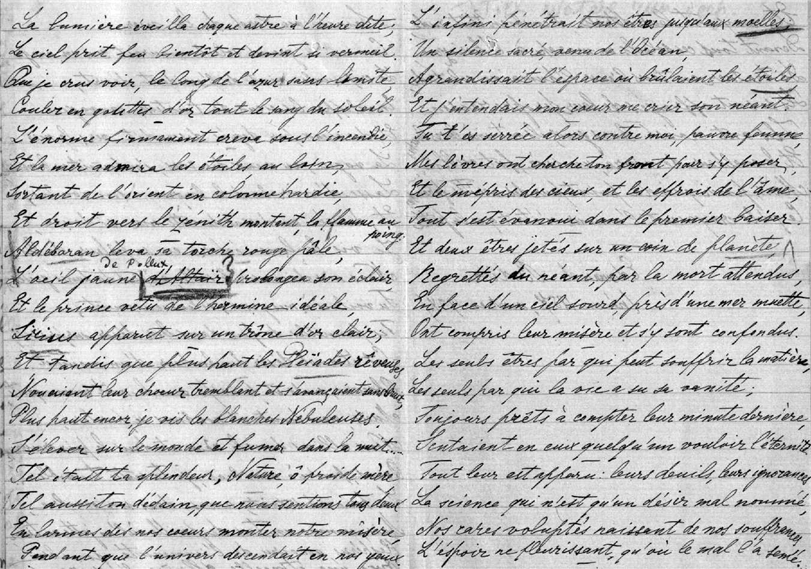 La lumière éveilla chaque astre à l'heure dite,
Le ciel prit feu bientôt et devint si vermeil
Que je crus voir, le long de l'azur sans limite,
Couler en gouttes d'or tout le sang du soleil.
L'énorme firmament creva sous l'incendie,
Et la mer admira les étoiles au loin,
Sortant de l'orient en colonne hardie,
Et droit vers le zénith montant, la flamme au
poing.
Aldébaran leva sa torche rouge pâle,
de Pollux
L'oeil jaune d'Altaïr ? prolongea son éclair
Et le prince vêtu de l'hermine idéale
Sirius apparut sur un trône d'or clair,
Et tandis que plus haut les Pleïades rêveuses
Nouaient leur choeur tremblant et s'avançaient sans bruit,
Plus haut encor je vis les blanches Nébuleuses
S'élever sur le monde et fumer dans la nuit...
Tel était ta splendeur, Nature ô froide mère
Tel aussi ton dédain, que nous sentions tous deux
En larmes de nos coeurs monter notre misère,
Pendant que l'univers descendait en nos yeux.
L'infini pénétrait nos êtres jusqu'aux moelles
Un silence sacré, venu de l'Océan,
Agrandissait l'espace où brûlaient les étoiles
Et j'entendais mon coeur me crier son néant.
Tu t'es serrée alors contre moi, pauvre femme,
Mes lèvres ont cherché ton front pour s'y poser,
Et le mépris des cieux, et les effrois de l'âme,
Tout s'est évanoui dans le premier baiser
Et deux êtres jetés sur un coin de planète,
Regrettés du néant, par la mort attendus
En face d'un ciel sourd, près d'une mer muette,
Ont compris leur misère et s'y sont confondus.
Les seuls êtres par qui peut souffrir la matière,
Les seuls par qui la vie a su sa vanité ;
Toujours prêts à compter leur minute dernière,
Sentaient en eux quelqu'un vouloir l'éternité
Tout leur est apparu : leurs deuils, leurs ignorances
La science qui n'est qu'un désir mal nommé,
Nos rares voluptés naissant de nos souffrances,
L'espoir ne fleurissant, qu'où le mal l'a semé.